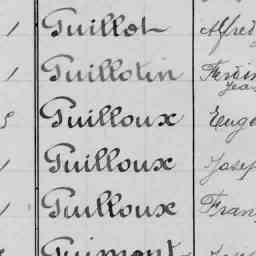 1 Guillot Alfred
1 Guillotin Ferdin
Jean
5 Guilloux Euge
1 Guilloux Josep
1 Guilloux Fran
Guimont